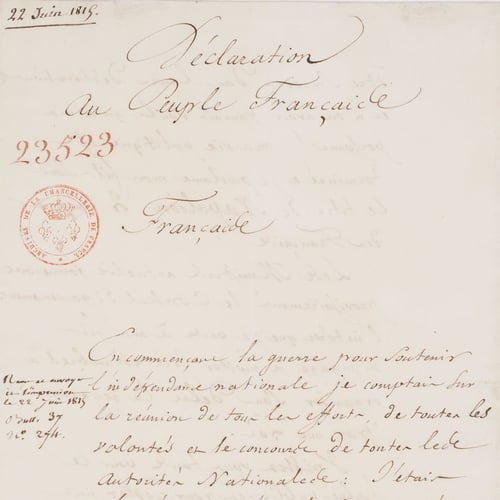 22 Juin 1815.
Déclaration
au Peuple Françaide
23523
ARCHIVES DE LA CHANCELLERIE DE FRANCE
Françaide
En commençant la guerre pour soutenir
l'indépendance nationale je comptais sur
la réunion de tous les efforts, de toutes les
volontés et le concours de toutes led
autorités Nationaled : J'étais
envoyé
le 22 Juin 1815
Bull. 37
N.º 274.